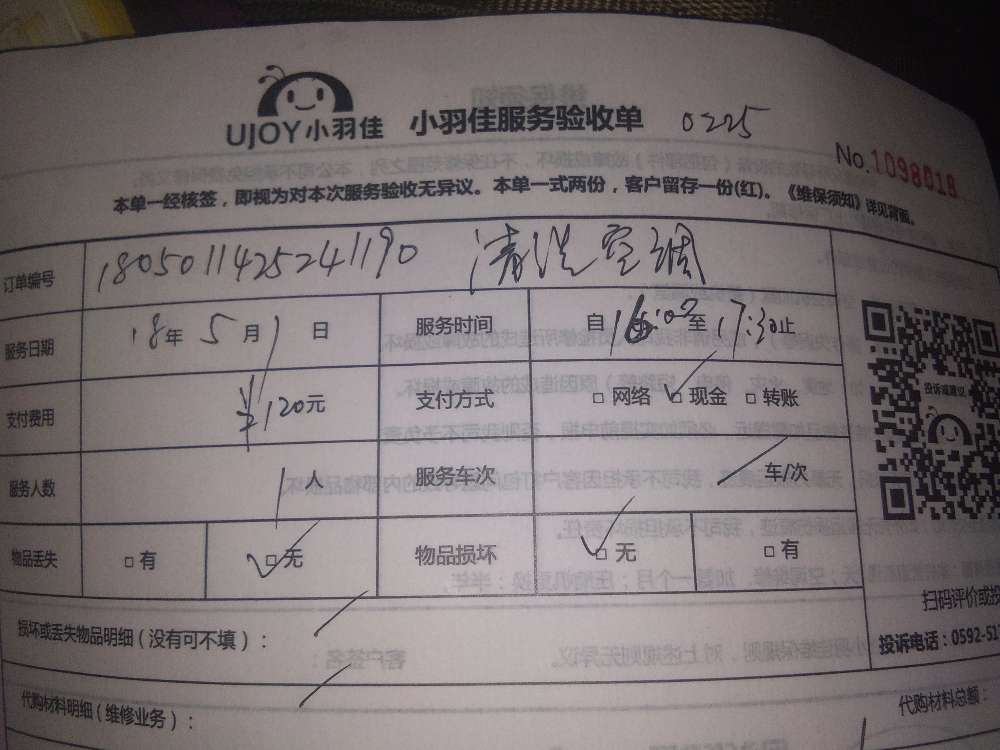 UJOY小羽佳 小羽佳服务验收单 0225
No.1098018
本单一经核签，即视为对本次服务验收无异议。本单一式两份，客户留存一份(红)。《维保须知》详见背面。
订单编号 1805011425241190 清洗空调
服务日期 18年5月1日 服务时间 自16:00至17:30止
支付费用 ¥120元 支付方式 □网络 ☑现金 □转账
投诉或建议
服务人数 1人 服务车次 / 车/次
物品丢失 □有 ☑无 物品损坏 ☑无 □有
扫码评价或投
损坏或丢失物品明细(没有可不填)： /
投诉电话：0592-51
代购材料明细(维修业务)： /
代购材料总额：